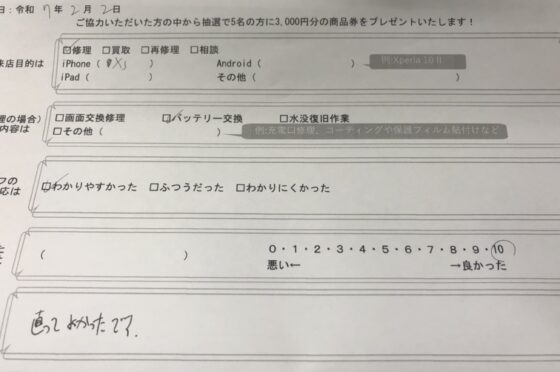 日：令和 7年 2月 2日
ご協力いただいた方の中から抽選で5名の方に3,000円分の商品券をプレゼントいたします！
来店目的は
☑修理 □買取 □再修理 □相談
iPhone（ XS ） Android（ ） 例:Xperia 10 Ⅱ
iPad（ ） その他（ ）
理の場合）
内容は
□画面交換修理 ☑バッテリー交換 □水没復旧作業
□その他（ ） 例:充電口修理、コーティングや保護フィルム貼付けなど
フの
応は
☑わかりやすかった □ふつうだった □わかりにくかった
（ ） 0・1・2・3・4・5・6・7・8・9・10
悪い← →良かった
直ってよかったです.